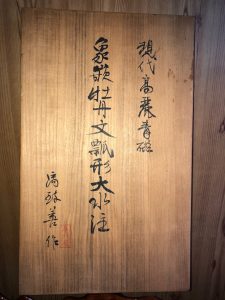 現代高麗青磁
象嵌牡丹文瓢形大水注
善作